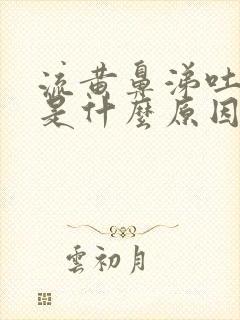 流黄鼻涕吐
是什麼原因
雲初月